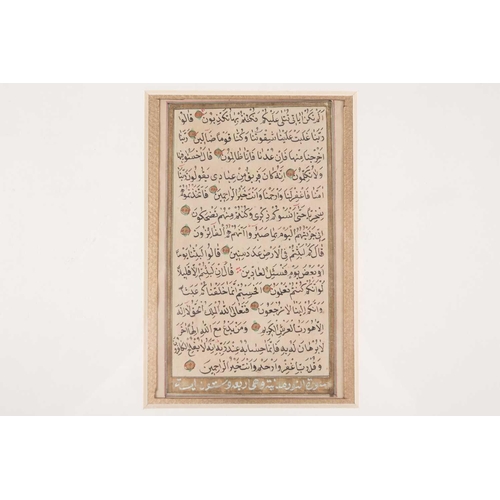 الم تكن اياتي تتلى عليكم فكنتم بها تكذبون قالوا
ربنا غلبت علينا شقوتنا وكنا قوما ضالين ربنا
اخرجنا منها فان عدنا فانا ظالمون قال اخسئوا فيها
ولا تكلمون انه كان فريق من عبادي يقولون ربنا
امنا فاغفر لنا وارحمنا وانت خير الراحمين فاتخذتموهم
سخريا حتى انسوكم ذكري وكنتم منهم تضحكون
اني جزيتهم اليوم بما صبروا انهم هم الفائزون
قال كم لبثتم في الارض عدد سنين قالوا لبثنا يوما
او بعض يوم فسئل العادين قال ان لبثتم الا قليلا
لو انكم كنتم تعلمون افحسبتم انما خلقناكم عبثا
وانكم الينا لا ترجعون فتعالى الله الملك الحق لا اله
الا هو رب العرش الكريم ومن يدع مع الله الها اخر
لا برهان له به فانما حسابه عند ربه انه لا يفلح الكافرون
وقل رب اغفر وارحم وانت خير الراحمين
سورة النور مدنية وهي اربع وستون اية